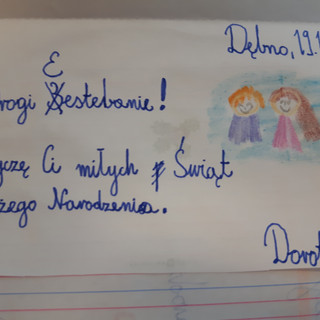 Dębno, 19.1
E
rogi Eestebanie!
czę Ci miłych Świąt
żego Narodzenia.
Dorot